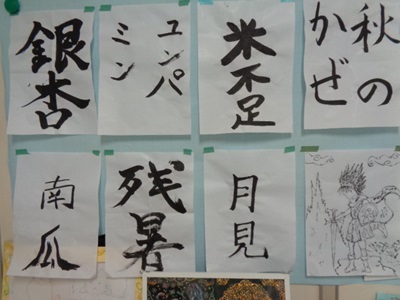 銀杏
ユンパ
ミン
米不足
秋の
かぜ
南瓜
残暑
月見